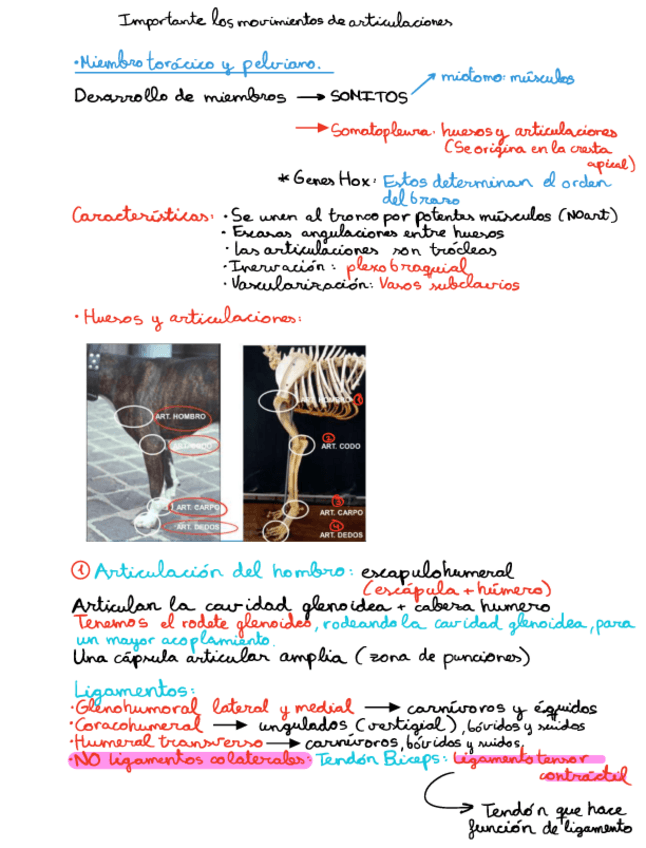 Importante los movimientos de articulaciones
·Miembro torácico y pelviano.
Desarrollo de miembros → SOMITOS
miotomo: músculos
→ Somatopleura: huesos y articulaciones
(Se origina en la cresta
apical)
* Genes Hox: Estos determinan el orden
del brazo
Características: · Se unen al tronco por potentes músculos (NO art)
· Escasas angulaciones entre huesos
· Las articulaciones son trócleas
· Inervación: plexo braquial
· Vascularización: Vasos subclavios
· Huesos y articulaciones:
ART. HOMBRO
ART. CARPO
ART. DEDOS
ART. HOMBRO 1
2
ART. CODO
3
ART. CARPO
4
ART. DEDOS
1 Articulación del hombro: escapulohumeral
(escápula + húmero)
Articulan la cavidad glenoidea + cabeza humero
Tenemos el rodete glenoideo, rodeando la cavidad glenoidea, para
un mayor acoplamiento.
Una cápsula articular amplia (zona de punciones)
Ligamentos:
·Glenohumoral lateral y medial → carnívoros y équidos
·Coracohumeral → ungulados (vestigial), bóvidos y suidos
·Humeral transverso → carnívoros, bóvidos y suidos
·NO ligamentos colaterales: Tendón Biceps: Ligamento tensor
contráctil
→ Tendón que hace
función de ligamento